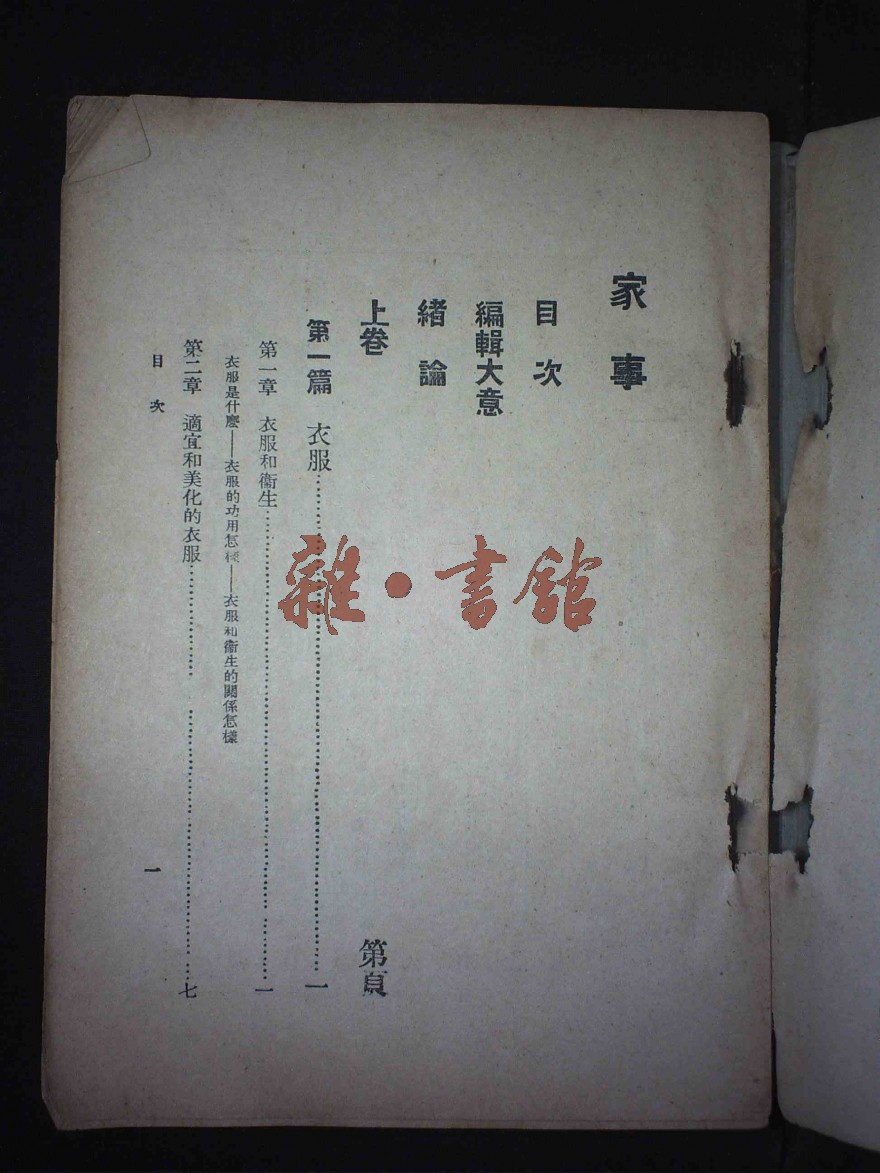 家事
目次
編輯大意
緒論
上卷 第頁
第一篇 衣服……一
第一章 衣服和衞生……一
衣服是什麼——衣服的功用怎樣——衣服和衞生的關係怎樣
第二章 適宜和美化的衣服……七
目次 一
雜·書館